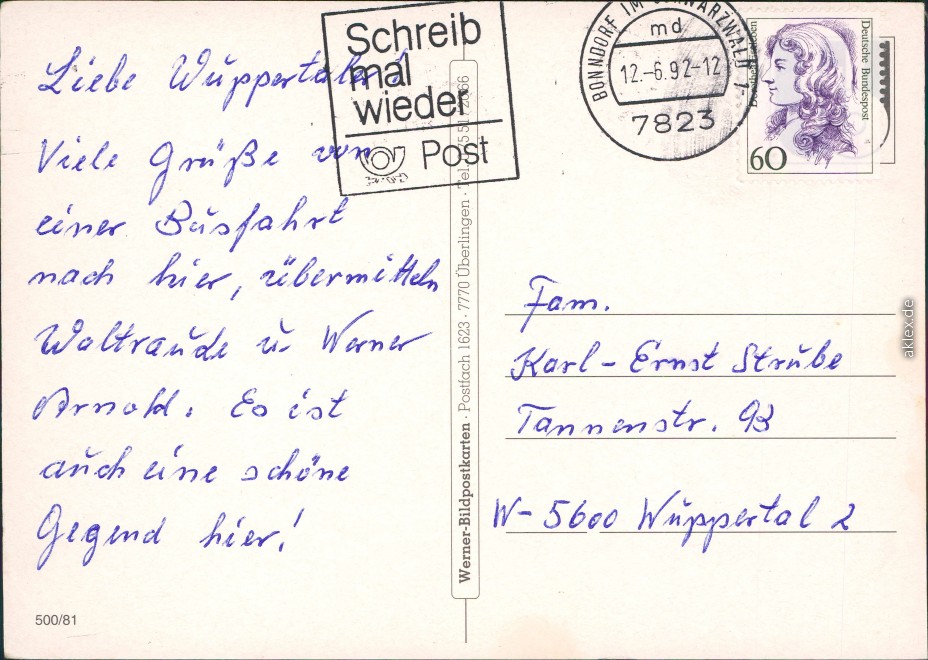 Liebe Wuppertaler!
Viele Grüße von
einer Busfahrt
nach hier, übermitteln
Waltraude u. Werner
Arnold. Es ist
auch eine schöne
Gegend hier!
500/81
Schreib
mal
wieder
Post
Werner-Bildpostkarten · Postfach 1623 · 7770 Überlingen · Tel.
BONNDORF IM SCHWARZWALD 1
md
12.-6.92-12
7823
Deutsche Bundespost
60
Fam.
Karl-Ernst Strube
Tannenstr. 93
W-5600 Wuppertal 2
aklex.de